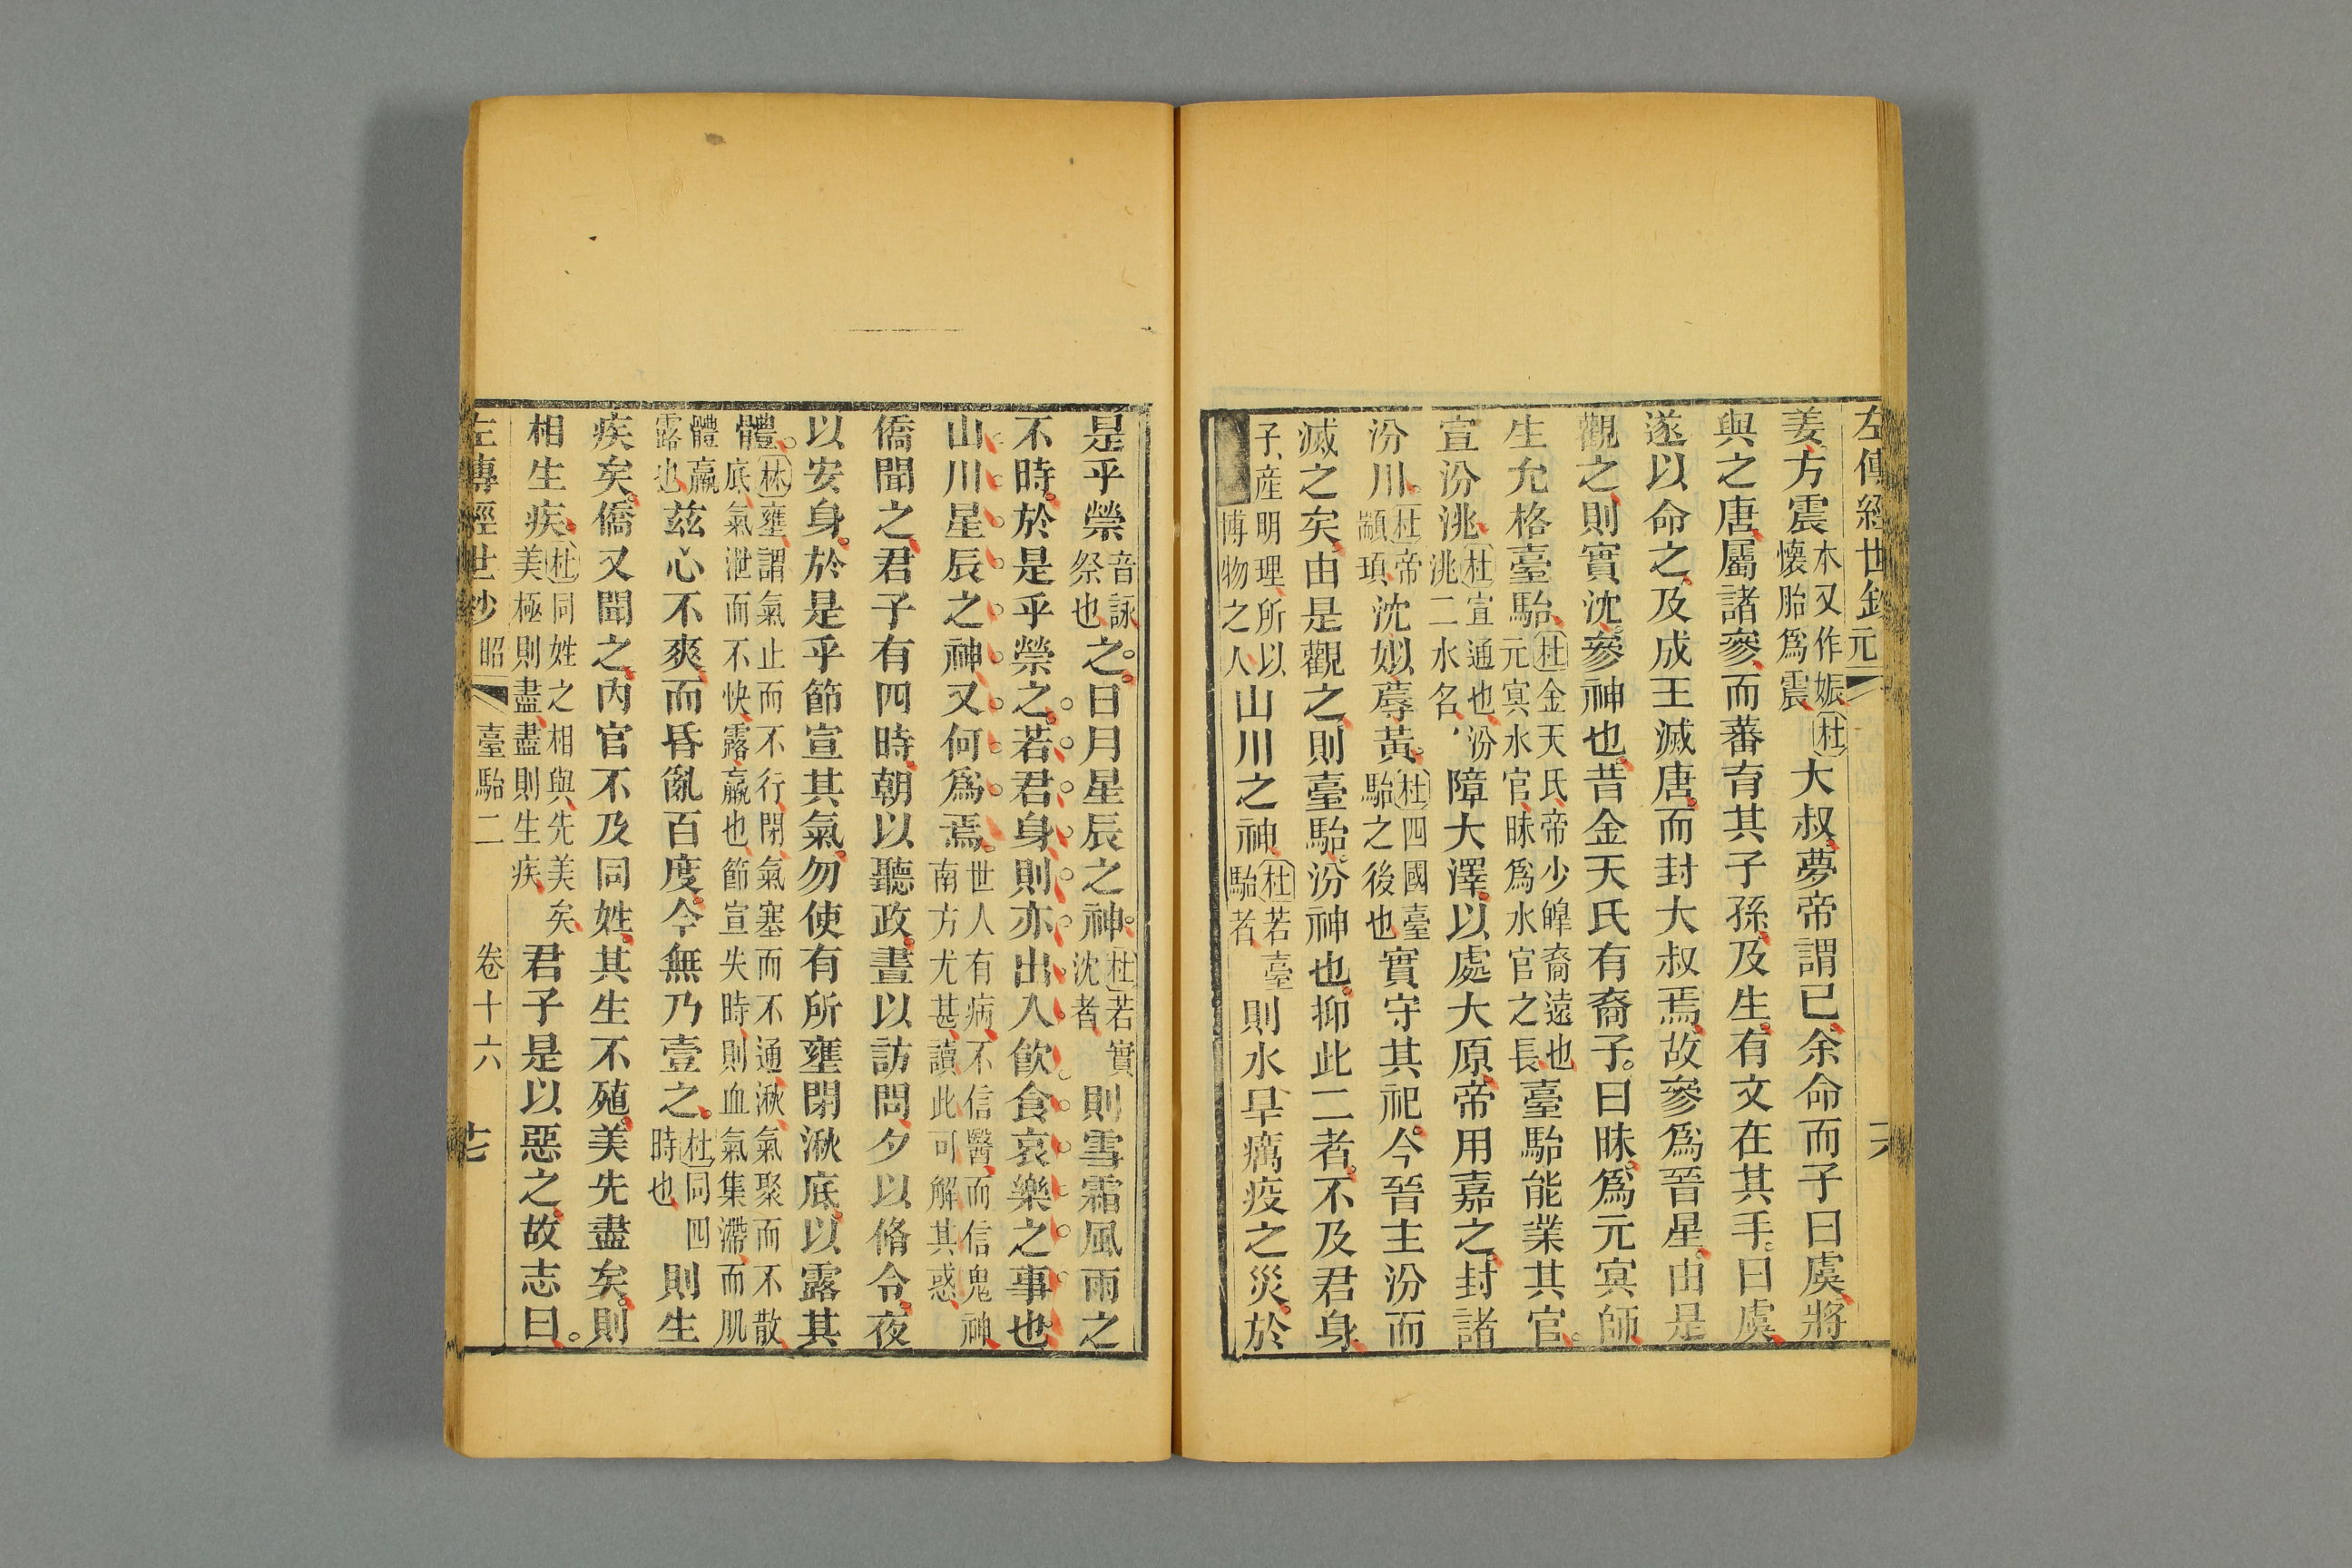 左傳經世鈔 元
姜方震本又作娠杜懷胎爲震大叔夢帝謂己余命而子曰虞將
與之唐屬諸參而蕃育其子孫及生有文在其手曰虞
遂以命之及成王滅唐而封大叔焉故參爲晉星由是
觀之則實沈參神也昔金天氏有裔子曰昧爲元冥師
生允格臺駘杜金天氏帝少皡裔遠也元冥水官昧爲水官之長臺駘能業其官
宣汾洮杜宣通也汾洮二水名障大澤以處大原帝用嘉之封諸
汾川杜帝顓頊沈姒蓐黃杜四國臺駘之後也實守其祀今晉主汾而
滅之矣由是觀之則臺駘汾神也抑此二者不及君身
子產明理所以博物之人山川之神杜若臺駘者則水旱癘疫之災於
是乎禜音詠祭也之日月星辰之神杜若實沈者則雪霜風雨之
不時於是乎禜之若君身則亦出入飲食哀樂之事也
山川星辰之神又何爲焉世人有病不信醫而信鬼神南方尤甚讀此可解其惑
僑聞之君子有四時朝以聽政晝以訪問夕以脩令夜
以安身於是乎節宣其氣勿使有所壅閉湫底以露其
體林壅謂氣止而不行閉氣塞而不通湫氣聚而不散底氣泄而不快露羸也節宣失時則血氣集滯而肌
體羸露也茲心不爽而昏亂百度今無乃壹之杜同四時也則生
疾矣僑又聞之內官不及同姓其生不殖美先盡矣則
相生疾杜同姓之相與先美矣美極則盡盡則生疾君子是以惡之故志曰
左傳經世鈔 昭 臺駘二 卷十六 十七